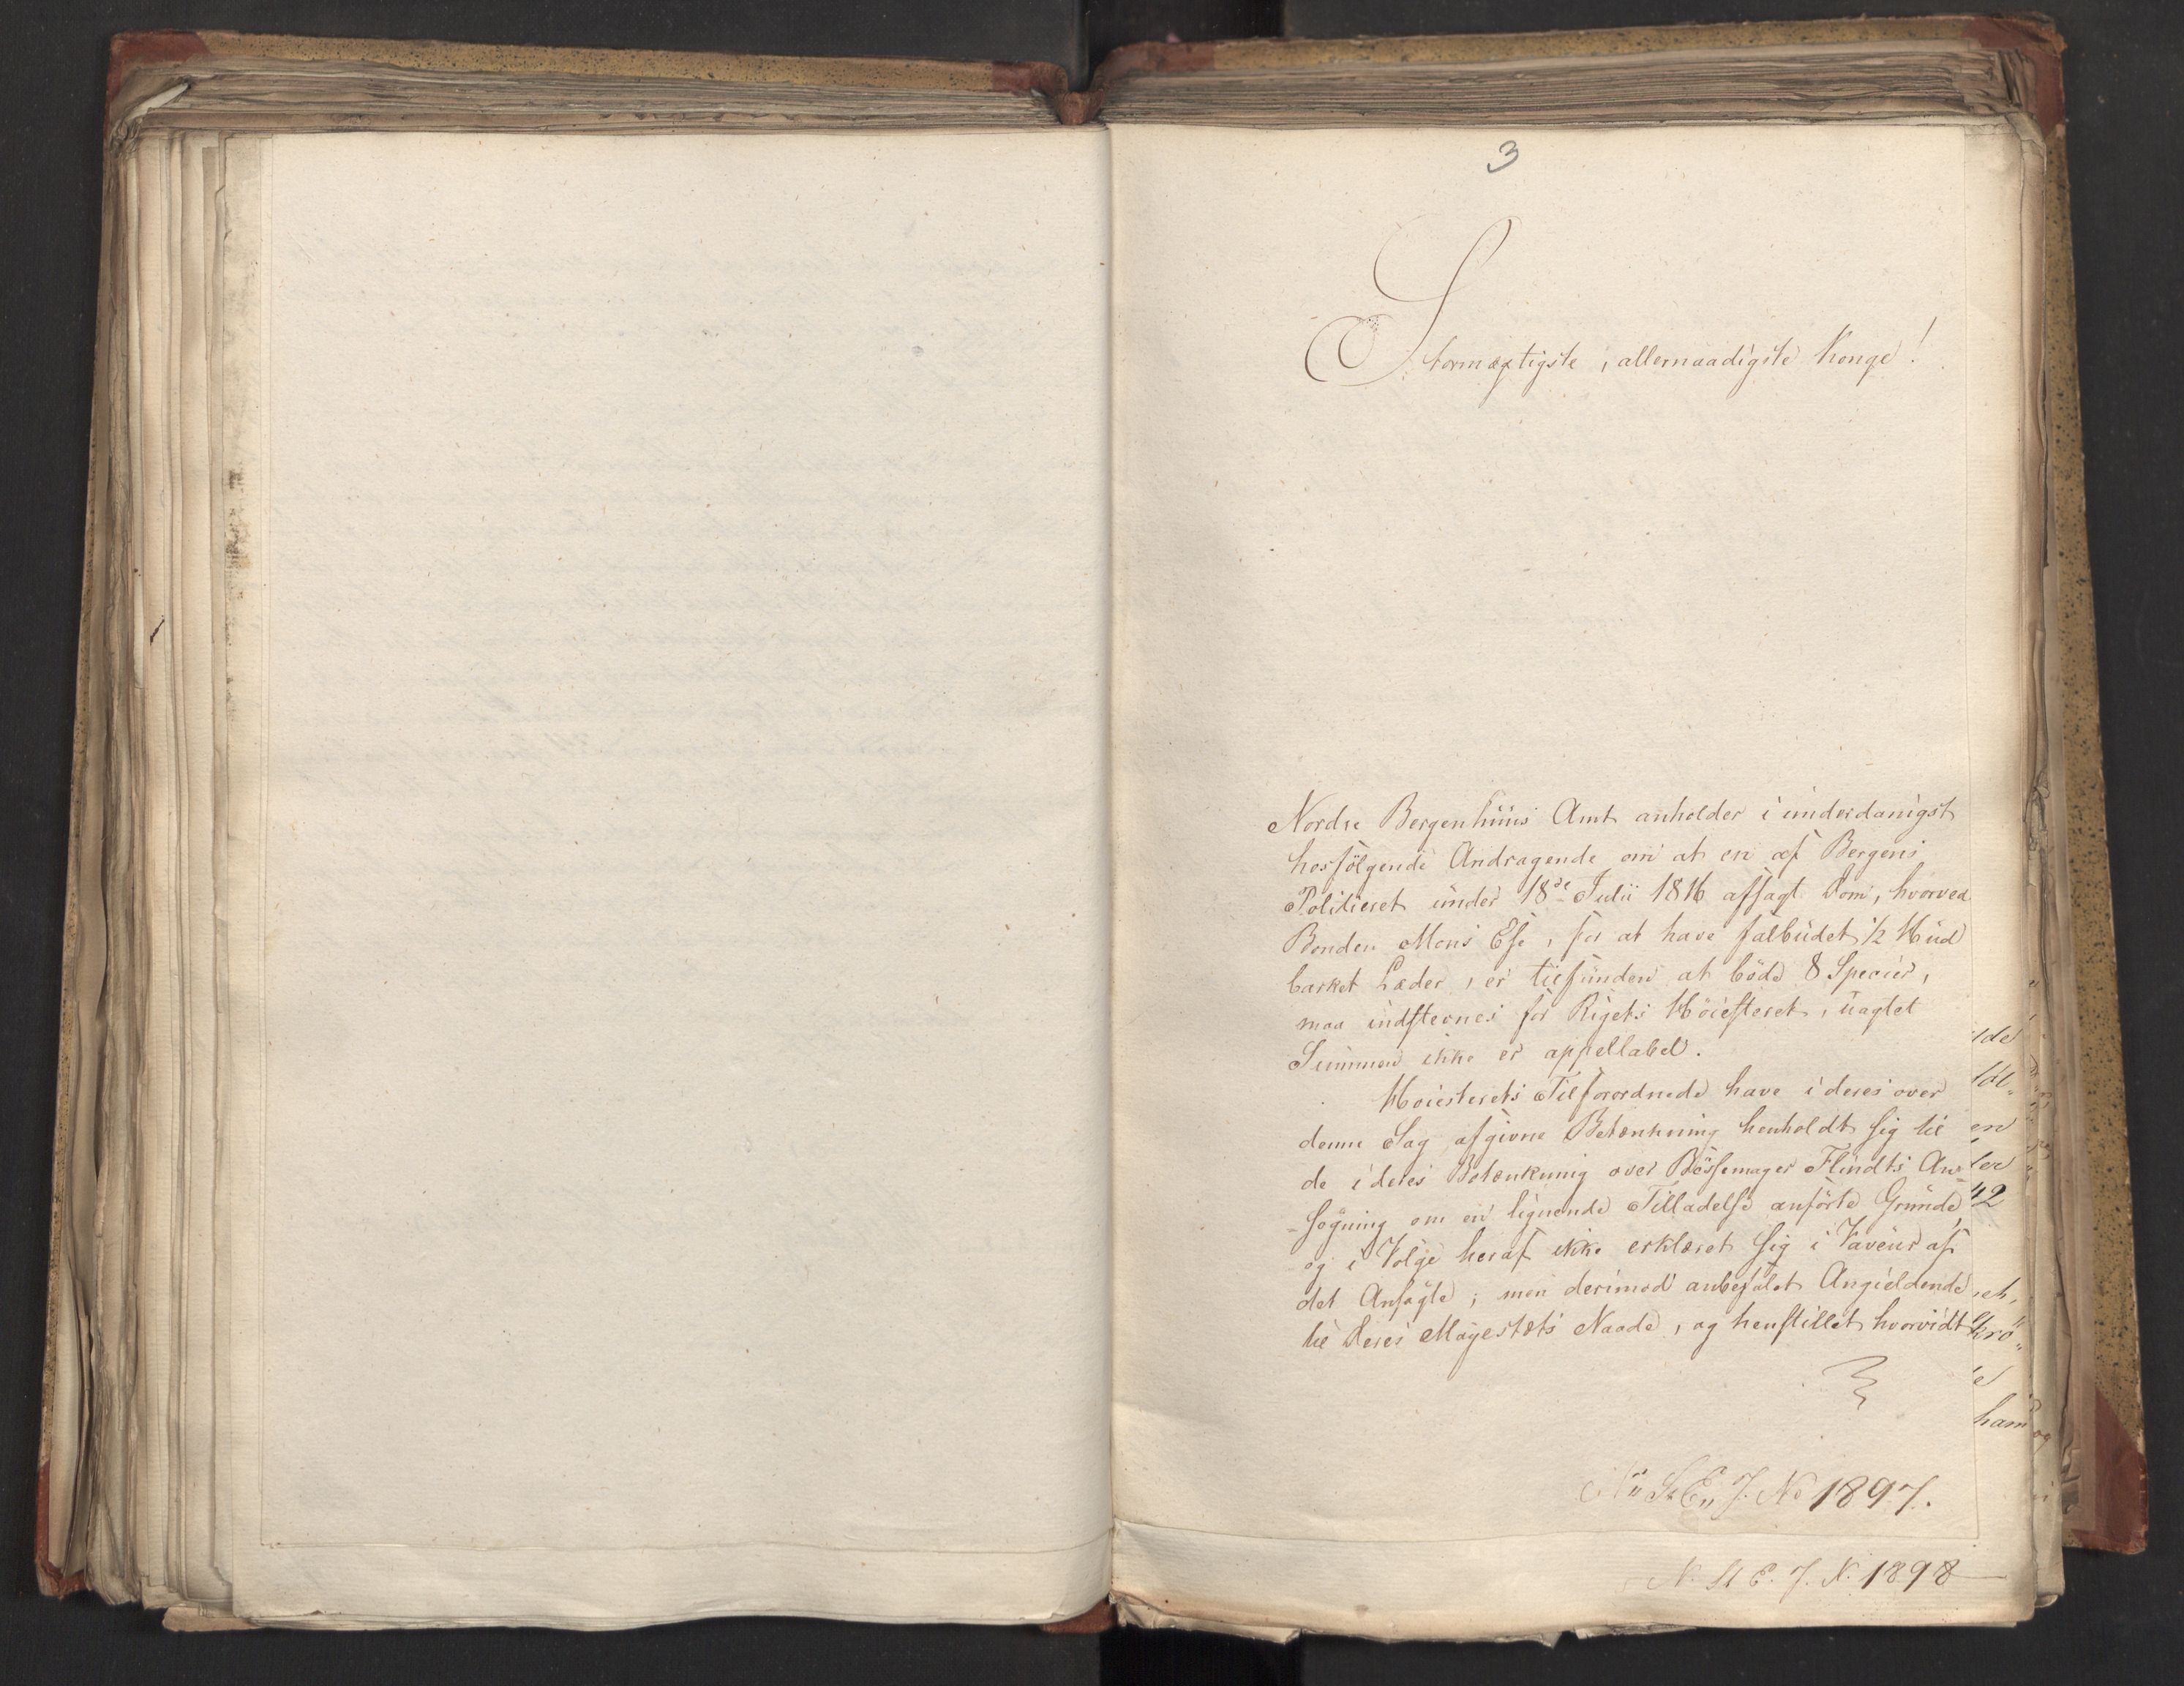 3
Stormægtigste, allernaadigste Konge!
Nordre Bergenhuus Amt anholder i underdanigst
hosfølgende Andragende om at en af Bergens
Politieret under 18de Julii 1816 afsagt Dom, hvorved
Bonden Mons Ese, for at have falbudet 1/2 Hud
barket Læder, er tilfunden at bøde 8 Specier,
maa indstevnes for Rigets Høiesteret, uagtet
Summen ikke er appellabel.
Høiesterets Tilforordnede have i deres over
denne Sag afgivne Betænkning henholdt sig til
de i deres Betænkning over Bøssemager Flindts An-
søgning om en lignende Tilladelse anførte Grunde,
og i Følge heraf ikke erklæret sig i Faveur af
det Ansøgte; men derimod anbefalet Angieldende
til Deres Majestæts Naade, og henstillet hvorvidt
N. St. E. J. No 1897.
N. St. E. J. N. 1898
ilde
töl-
en
ler
42
et,
krö-
ham
og